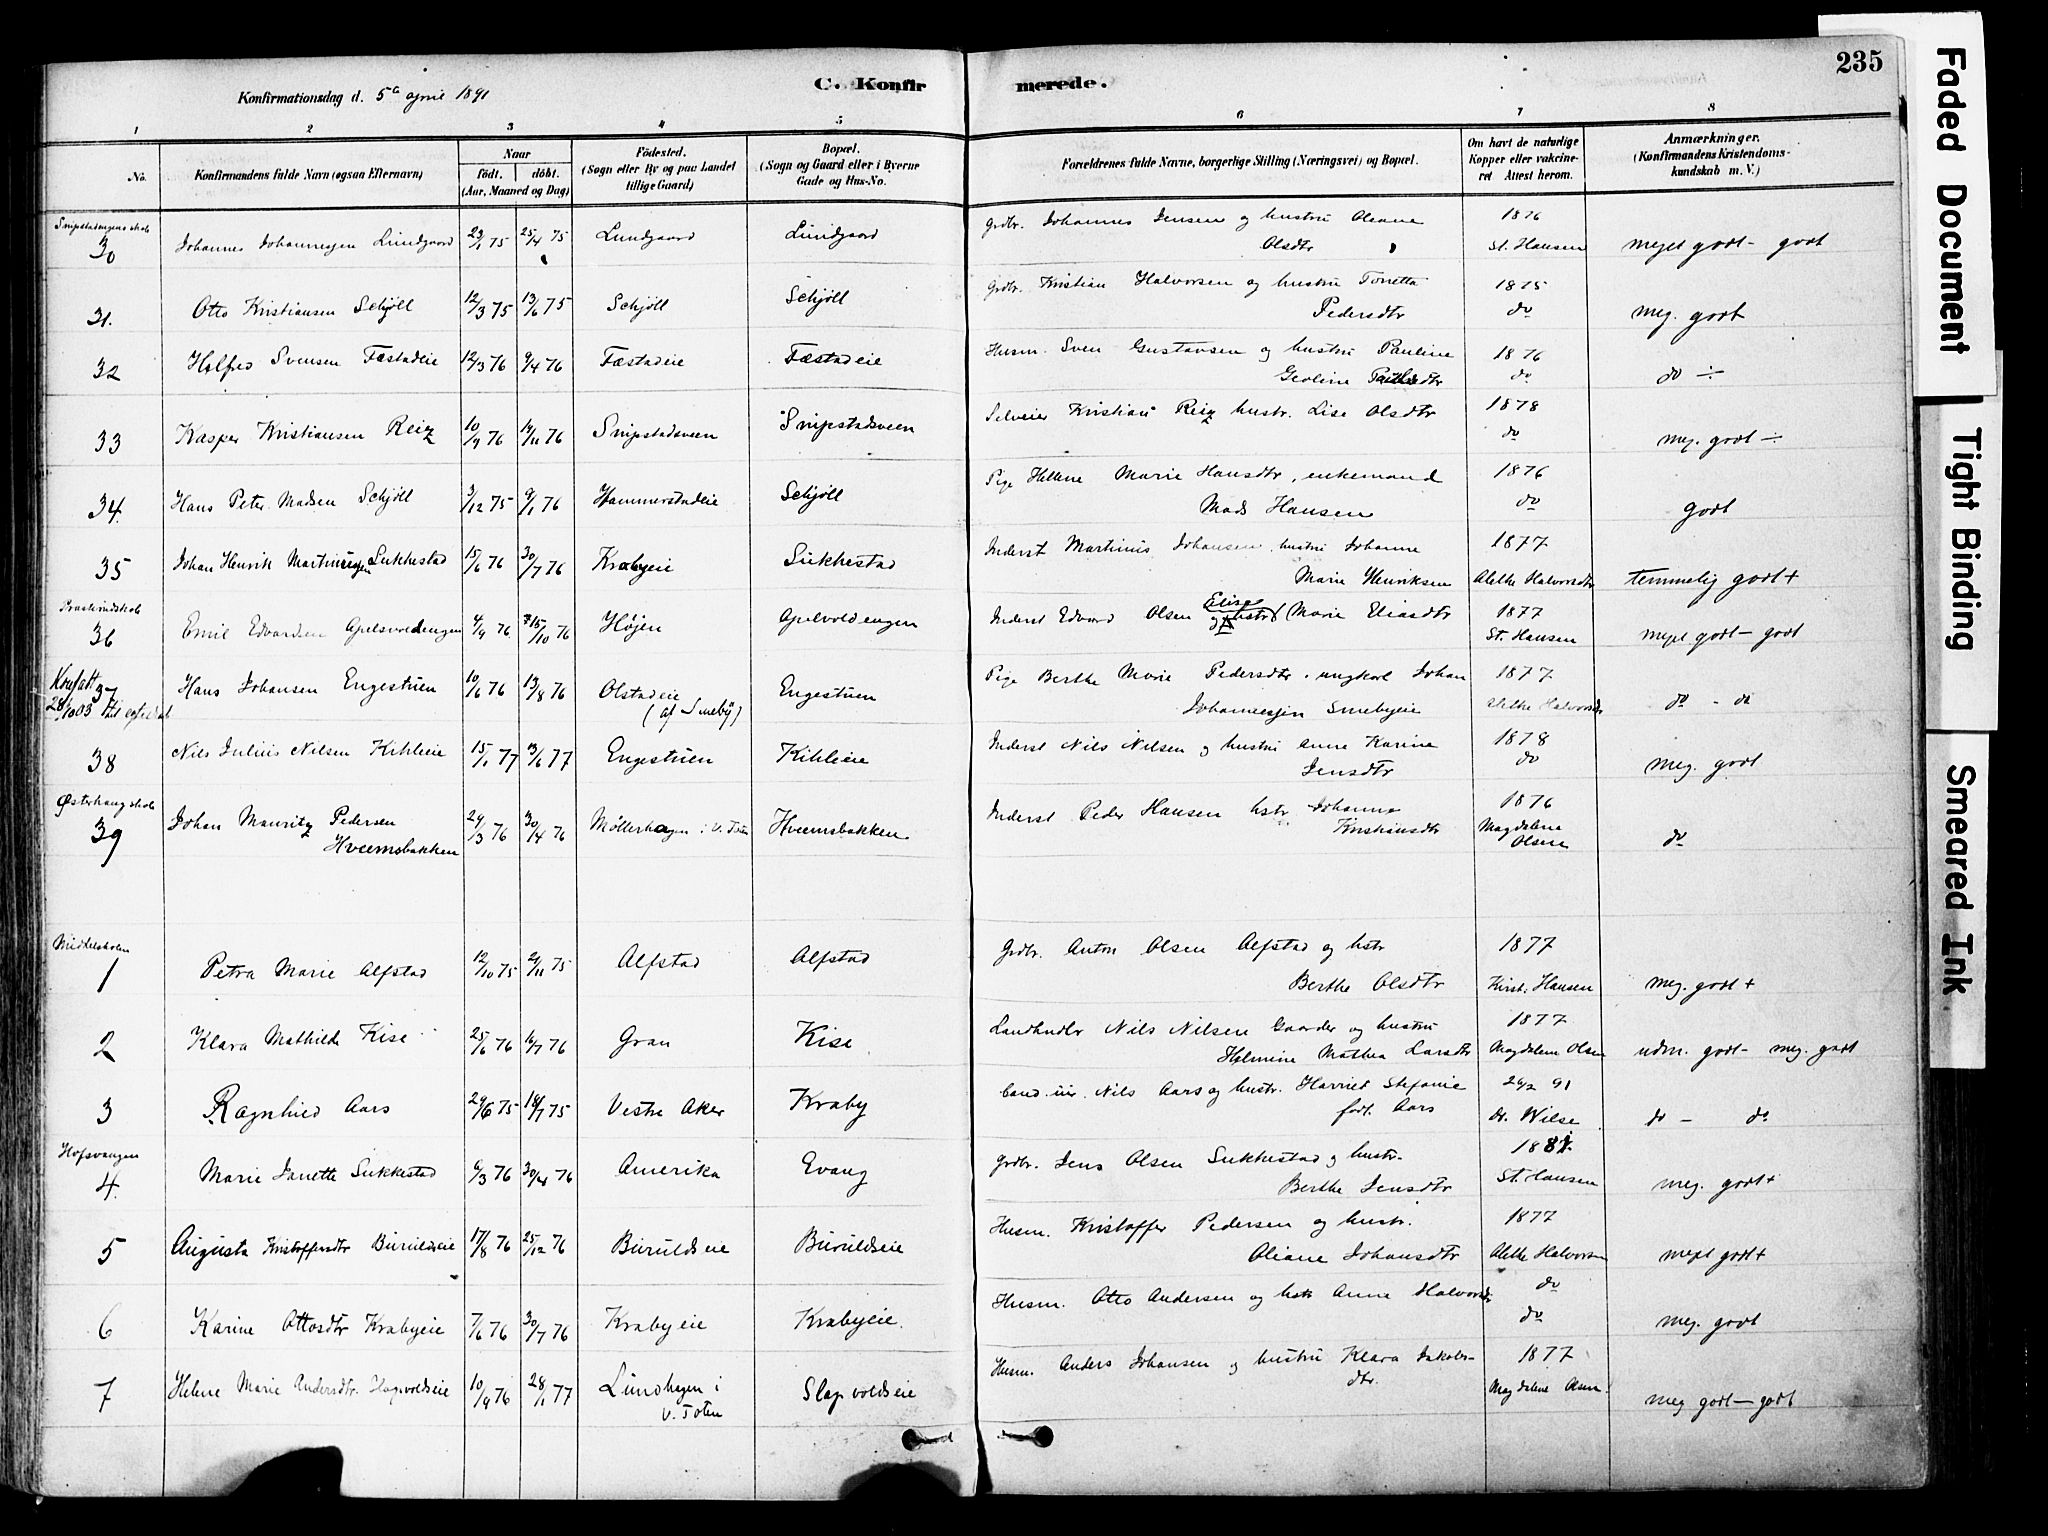 235
Konfirmationsdag d. 5te april 1891
C. Konfirmerede.
1 2 3 4 5 6 7 8
No.
Konfirmandens fulde Navn (ogsaa Efternavn)
Naar født. døbt. (Aar, Maaned og Dag)
Födested. (Sogn eller By og paa Landet tillige Gaard)
Bopæl. (Sogn og Gaard eller i Byerne Gade og Hus-No.
Forældrenes fulde Navne, borgerlige Stilling (Næringsvei) og Bopæl.
Om havt de naturlige Kopper eller vakcineret Attest herom.
Anmærkninger. (Konfirmandens Kristendomskundskab m. V.)
30 Johannes Johannesen Lundgaard 23/1 75 25/4 75 Lundgaard Lundgaard Grdbr. Johannes Jensen og hustru Oleane Olsdtr 1876 St. Hansen meget godt - godt
31. Otto Kristiansen Schjöll 12/3 75 13/6 75 Schjöll Schjöll Grdbr. Kristian Halvorsen og hustru Tonetta Pedersdtr 1875 do meg. godt
32 Halfred Svensen Fæstadeie 12/3 76 9/4 76 Fæstadeie Fæstadeie Husm. Sven Gustavsen og hustru Pauline Geoline 1876 do do ÷
33 Kasper Kristiansen Reiz 10/9 76 19/11 76 Snipstadsveen Snipstadsveen Selveier Kristian Reiz hustr. Lise Olsdtr 1878 do meg. godt ÷
34. Hans Peter Madsen Schjöll 3/12 75 9/1 76 Hammerstadeie Schjöll Pige Hellene Marie Hansdtr, enkemand Mads Hansen 1876 do godt
35 Johan Henrik Martinusen Sukkestad 15/6 76 30/7 76 Krabyeie Sukkestad Inderst Martinus Johansen, hustru Johanne Marie Henriksen 1877 Alethe Halvorsdtr temmelig godt +
36 Emil Edvardsen Apelsvoldengen 4/9 76 15/10 76 Højen Apelvoldengen Inderst Edvard Olsen og hustr Elise Marie Eliasdtr 1877 St. Hansen meget godt - godt
37 Hans Johansen Engestuen 10/6 76 13/8 76 Olstadeie (af Smeby) Engestuen Pige Berthe Marie Pedersdtr, ungkarl Johan Johannesen Smebyeie 1877 Alethe Halvorsdr do - do
38 Nils Julius Nilsen Kihleeie 15/1 77 Engestuen Kihleeie Inderst Nils Nilsen og hustru Anne Karine Jensdtr 1878 do meg. godt
Østerhaug skole
39 Johan Mauritz Pedersen Hveemsbakken 24/3 76 30/4 76 Möllerhagen i V. Toten Hveemsbakken Inderst Peder Hansen hstr. Johanne Kristiansdtr 1876 Magdalene Olsen do
Middelskolen
1 Petra Marie Alfstad 12/10 75 21/11 75 Alfstad Alfstad Grdbr. Anton Olsen Alfstad og hstr Berthe Olsdtr 1877 Kirst. Hansen meg. godt +
2 Klara Mathilde Kise 25/6 76 16/7 76 Gran Kise Landhndlr Nils Nilsen Gaarder og hustru Helmine Mathea Larsdtr 1877 Magdalene Olsen udm. godt - meg. godt
3 Ragnhild Aars 29/6 75 18/7 75 Vestre Aker Kraby Cand. jur. Nils Aars og hustr. Harriet Stefanie født Aars 24/2 91 Dr. Wilse do - do
Hofsvangen
4. Marie Janette Sukkestad 6/3 76 30/4 76 Amerika Evang Grdbr. Jens Olsen Sukkestad og hustr. Berthe Jensdtr 1881 St. Hansen meg. godt +
5 Augusta Kristoffersdtr Buruldseie 17/8 76 25/12 76 Buruldseie Buruldseie Husm. Kristoffer Pedersen og hustr. Oliane Johansdtr 1877 Alethe Halvorsen meget godt +
6 Karine Ottosdtr Krabyeie 7/6 76 30/7 76 Krabyeie Krabyeie. Husm. Otto Andersen og hstr Anne Halvorsdr do do meg. godt
7 Helene Marie Andersdtr. 10/9 76 28/1 77 Lundhagen i V. Toten Husm. Anders Johansen og hustru Klara Jakobsdtr. 1877 Magdalene Olsen. meg godt - godt
Faded Document
Tight Binding
Smeared Ink